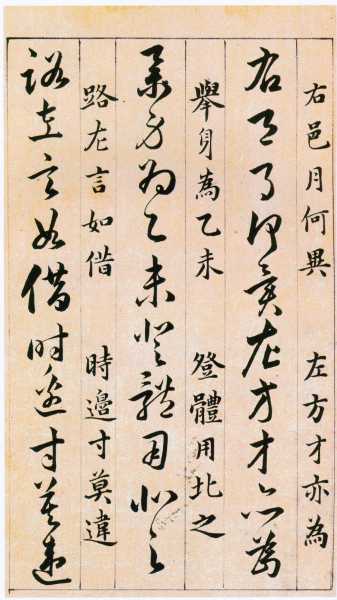 右邑月何異　左方才亦為
右邑月何異左方才亦為
舉身為乙未　登體用北之
舉身為乙未登體用北之
路左言如借　時邊寸莫違
路左言如借時邊寸莫違